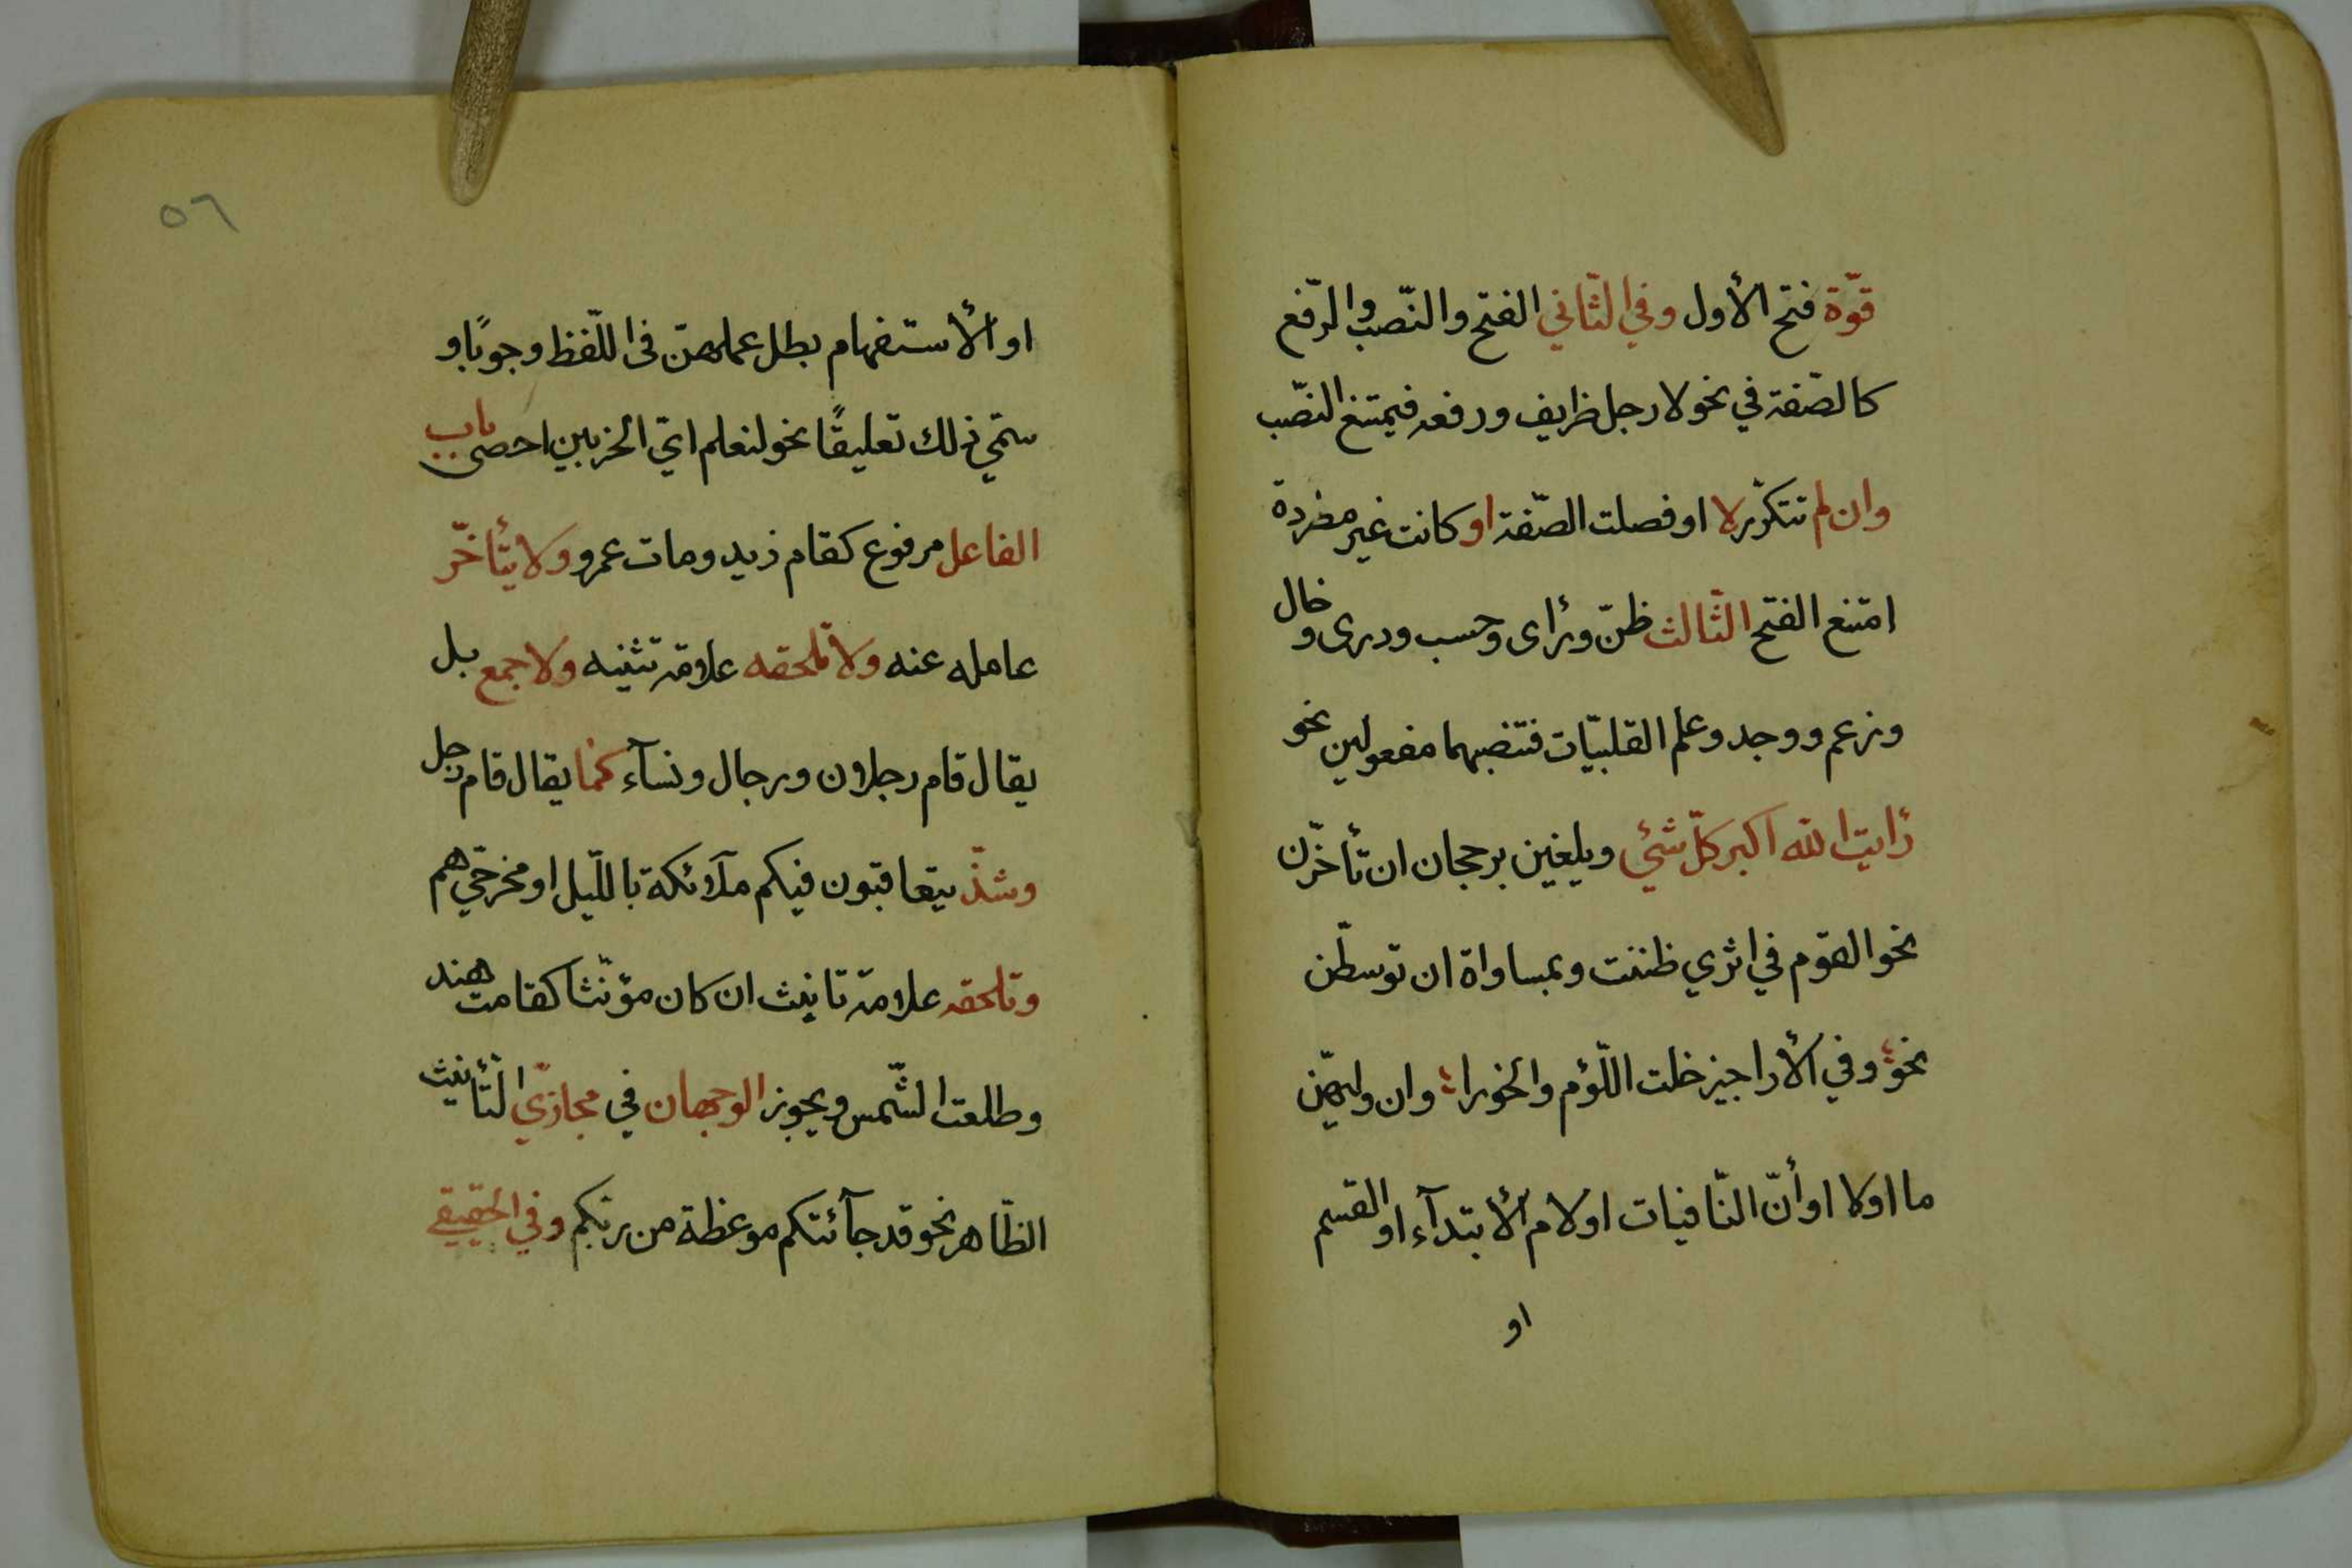 قوّة فتح الأول وفي الثّاني الفتح والنّصب والرّفع
كالصّفة في نحو لا رجل ظريف ورفعه فيمتنع النّصب
وان لم تتكرّر لا او فصلت الصّفة او كانت غير مفردة
امتنع الفتح الثّالث ظنّ ورأى وحسب ودرى وخال
وزعم ووجد وعلم القلبيّات فتنصبهما مفعولين نحو
رأيت الله اكبر كلّ شئي ويلغين برجحان ان تأخّرن
نحو القوم في اثري ظننت وبمساواة ان توسطّن
نحو وفي الأراجيز خلت اللّؤم والخورا وان وليهنّ
ما اولا او أنّ النّافيات اولام الأبتدآء او القسم
او
٥٦
او الأستفهام بطل عملهنّ فى اللّفظ وجوبًا و
سمّي ذلك تعليقًا نحو لنعلم ايّ الحزبين احصى باب
الفاعل مرفوع كقام زيد ومات عمرو ولا يتأخّر
عامله عنه ولا تلحقه علامة تثنيه ولا جمع بل
يقال قام رجلان ورجال ونسآء كما يقال قام رجل
وشذّ يتعاقبون فيكم ملآئكة بالّليل او مخرجيّ هم
وتلحقه علامة تانيث ان كان مؤنّثا كقامت هند
وطلعت الشّمس ويجوز الوجهان في مجازيّ التّأنيث
الظّاهر نحو قد جآئتكم موعظة من ربّكم وفي الحقيقي